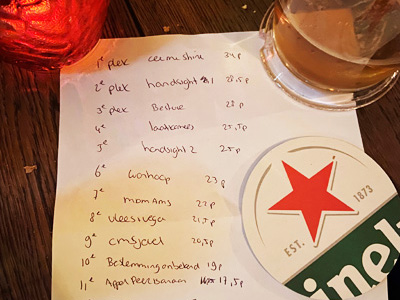 1e plek cermeshine 34p
2e plek handsight 1 28,5p
3e plek Bestuur 28p
4e laatkomers 25,5p
5e handsight 2 25p
6e wanhoop 23p
7e mam ams 22p
8e vleesvega 21,5p
9e 20,5p
10e Bestemming onbekend 19p
11e Appel Peer Banaan 17,5p
EST. 1873
inek